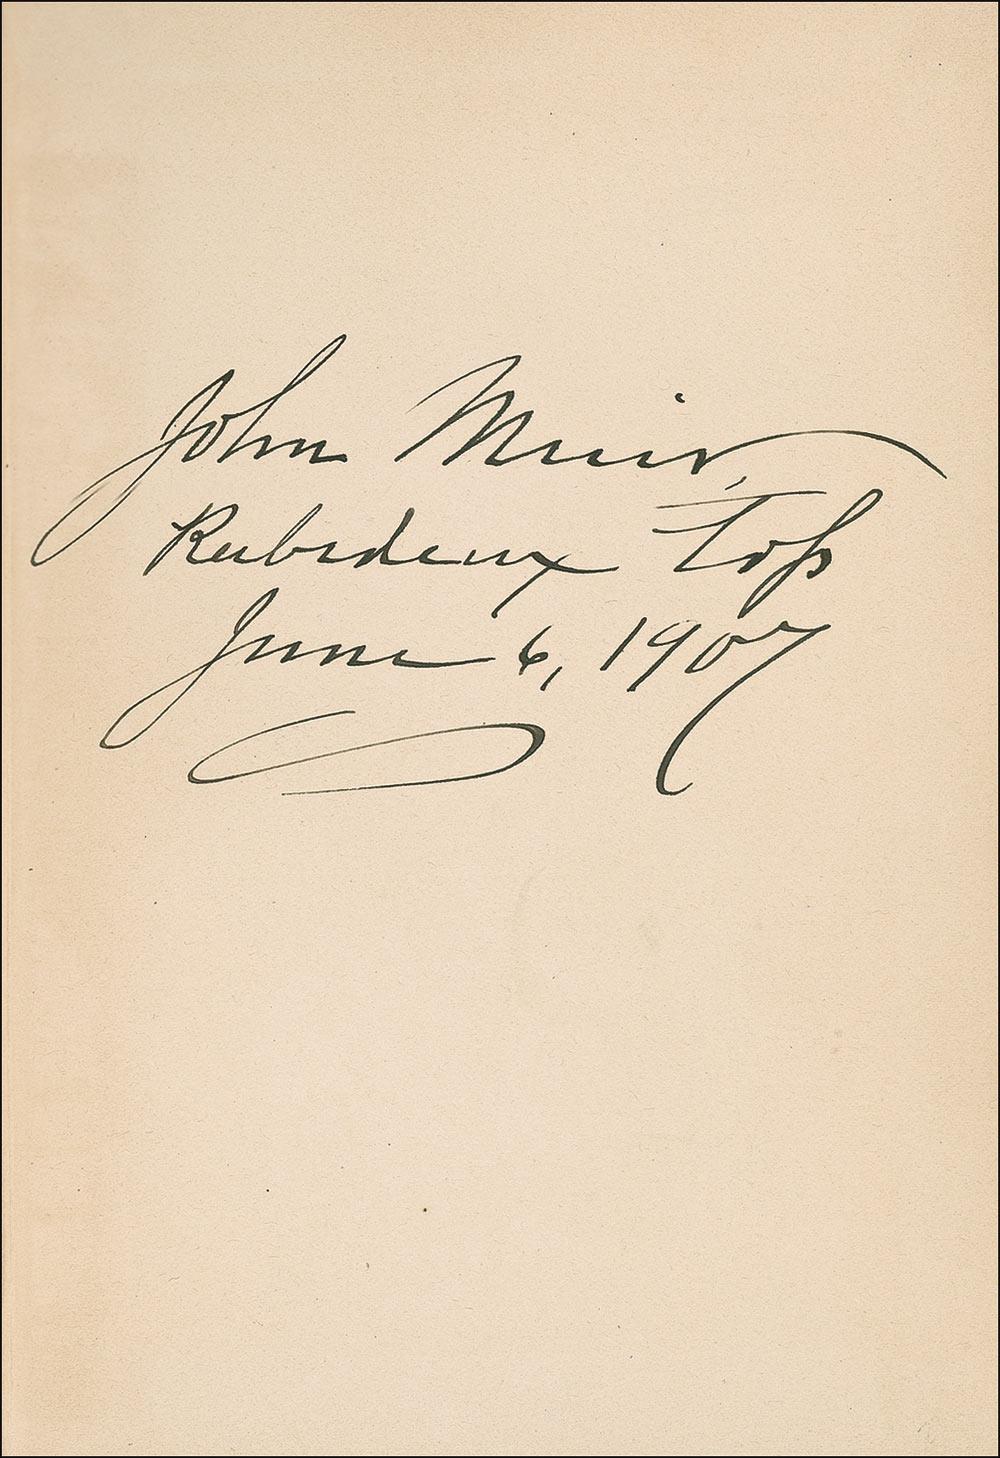 John Muir,
Rubideux Top
June 6, 1907